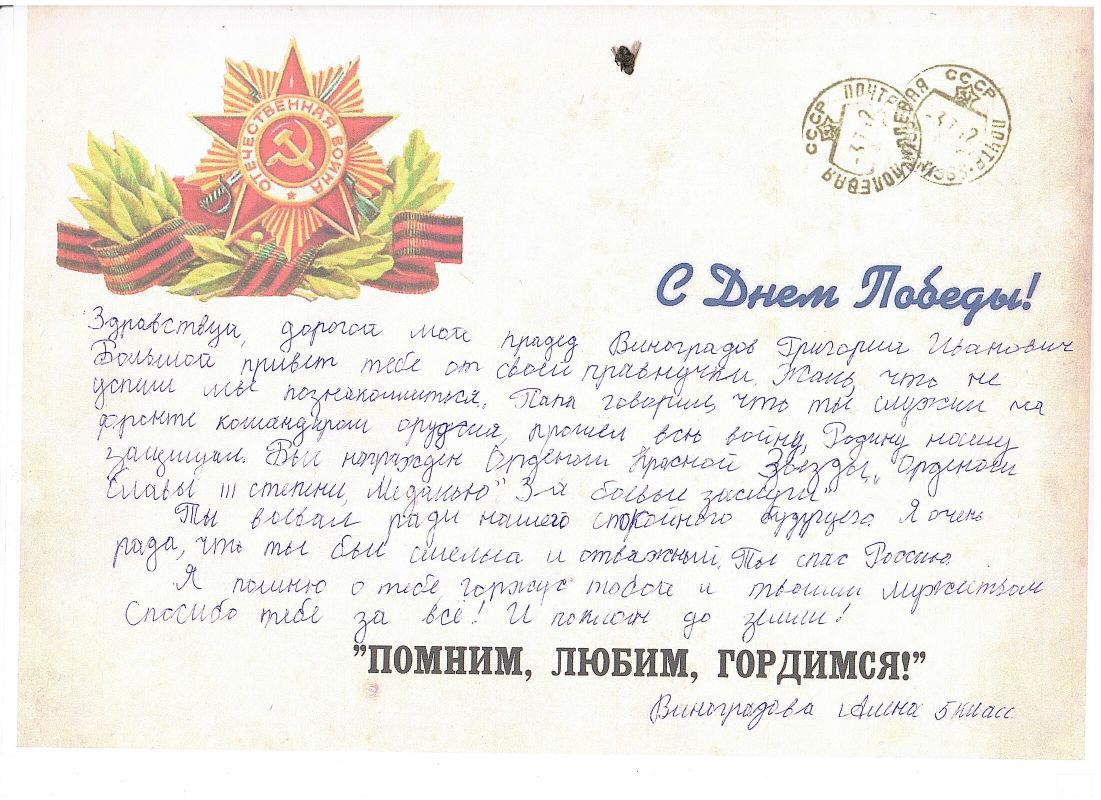 ОТЕЧЕСТВЕННАЯ ВОЙНА
СССР ПОЧТА ПОЛЕВАЯ
ПОЛЕВАЯ СССР ПОЧТА
С Днем Победы!
Здравствуй, дорогой мой прадед Виноградов Григорий Иванович
Большой привет тебе от своей правнучки. Жаль, что не
успели мы познакомиться. Папа говорил, что ты служил на
фронте командиром орудия, прошёл всю войну, Родину нашу
защищал. Был награждён Орденом Красной Звезды, "Орденом
Славы III степени, Медалью" За боевые заслуги"
Ты воевал ради нашего спокойного будущего. Я очень
рада, что ты был смелым и отважным. Ты спас Россию.
Я помню о тебе, горжусь тобой и твоим мужеством
Спасибо тебе за всё! И поклон до земли!
"ПОМНИМ, ЛЮБИМ, ГОРДИМСЯ!"
Виноградова Алёна 5 класс